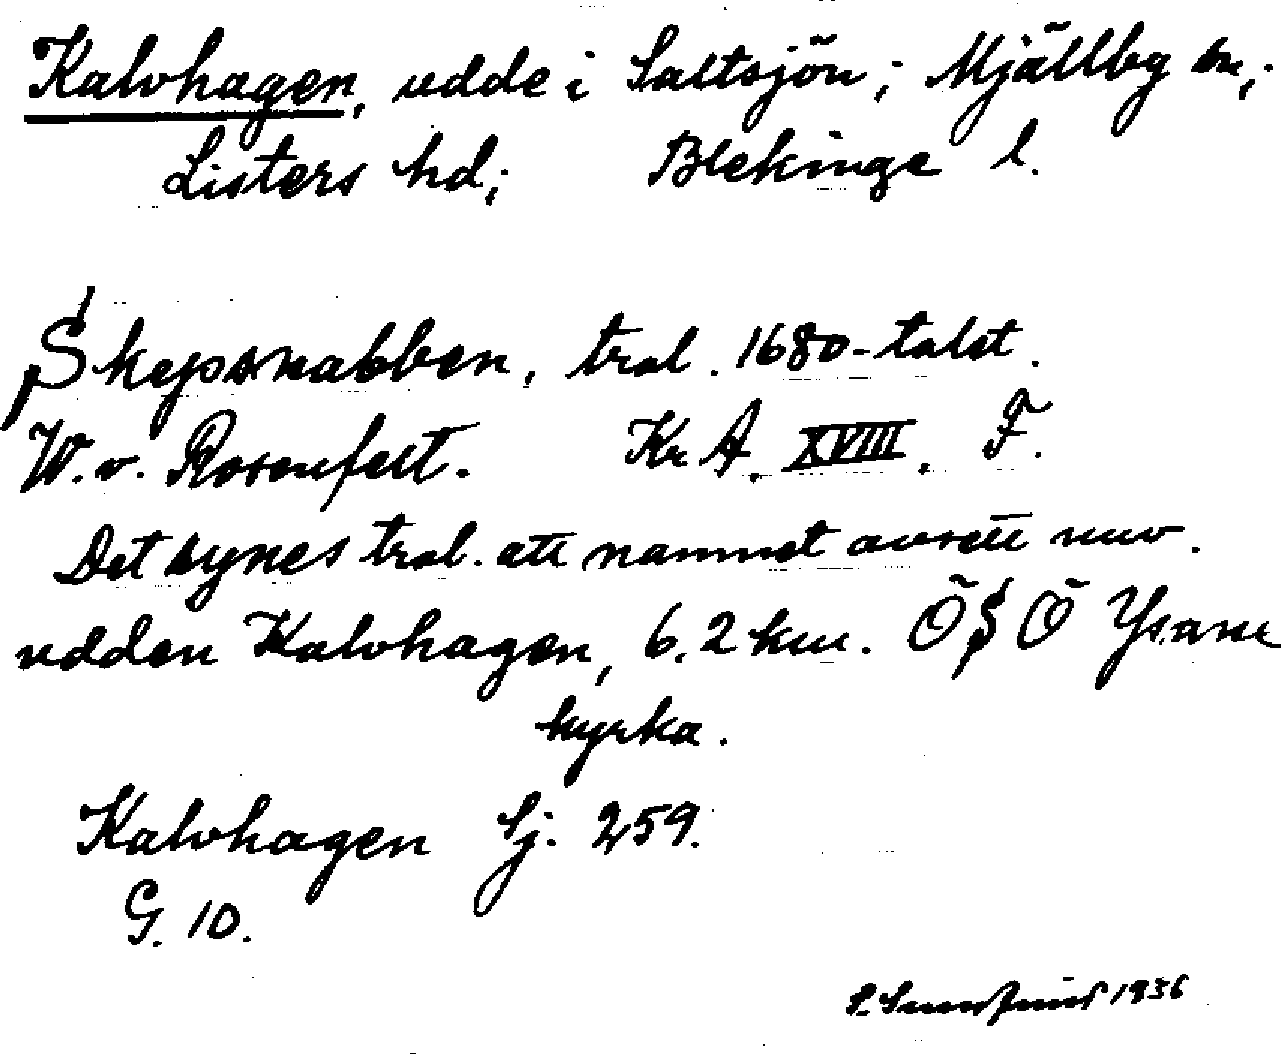 Kalvhagen, udde i Saltsjön; Mjällby sn;
Listers hd; Blekinge l.
Skepsnabben, trol. 1680-talet.
W. v. Rosenfelt. Kr A. XVIII. F.
Det synes trol. att namnet avsett nuv.
udden Kalvhagen, 6.2 km. ÖSÖ Ysane
kyrka.
Kalvhagen Sj. 259.
G. 10.
1936